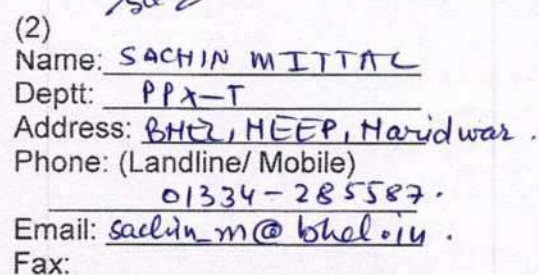 (2)
Name: SACHIN MITTAL
Deptt: PPX-T
Address: BHEL, HEEP, Haridwar.
Phone: (Landline/ Mobile)
01334-285587.
Email: sachin_m@bhel.in.
Fax: